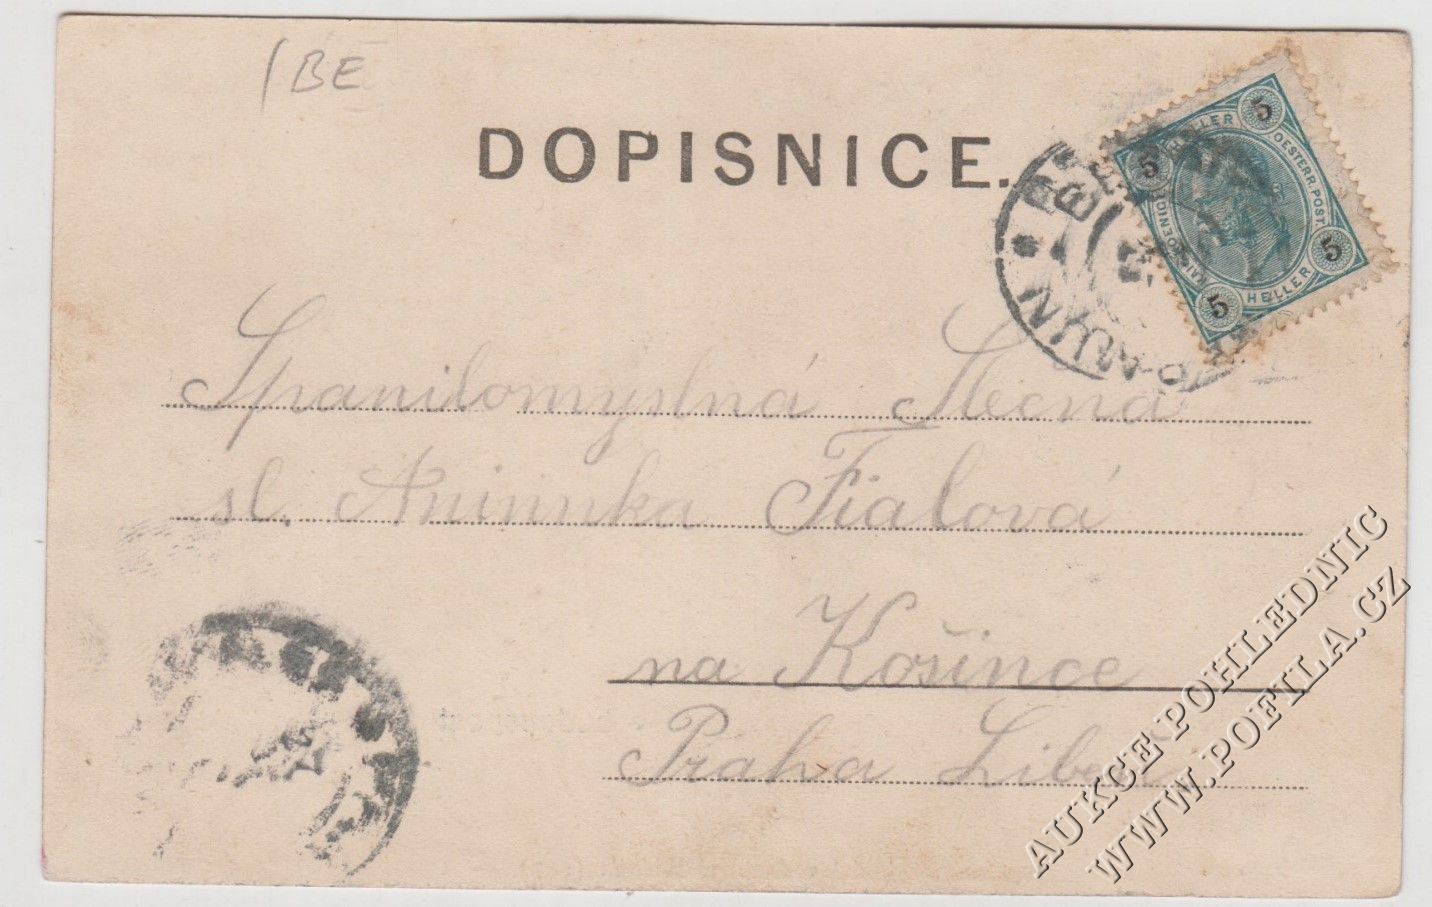 BE
DOPISNICE.
5 HELLER 5
OESTERR. POST.
5 HELLER 5
Spanilomyslná Slečna
sl. Aninnka Fialová
na Košince
Praha Libeň
AUKCE POHLEDNIC
WWW.POFILA.CZ